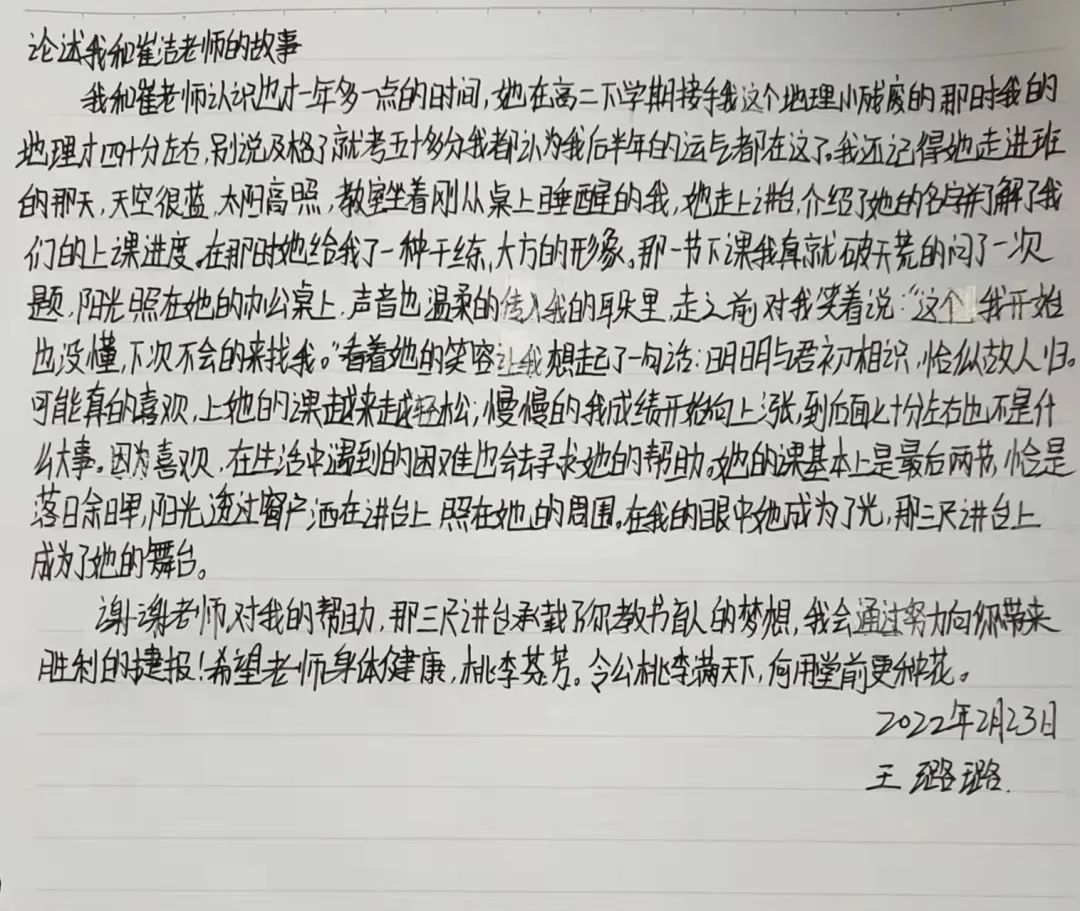 论述我和崔洁老师的故事
我和崔老师认识也才一年多一点的时间，她在高二下学期接手我这个地理小残废的那时我的
地理才四十分左右，别说及格了就考五十多分我都认为我后半年的运气都在这了。我还记得她走进班
的那天，天空很蓝，太阳高照，教室坐着刚从桌上睡醒的我，她走上讲台，介绍了她的名字并了解了我
们的上课进度。在那时她给我了一种干练、大方的形象。那一节下课我真就破天荒的问了一次
题，阳光照在她的办公桌上，声音也温柔的传入我的耳朵里，走之前对我笑着说：“这个我开始
也没懂，下次不会的来找我。”看着她的笑容让我想起了一句话：明明与君初相识，恰似故人归。
可能真的喜欢，上她的课越来越轻松；慢慢的我成绩开始向上涨，到后面七十分左右也不是什
么大事。因为喜欢，在生活中遇到的困难也会去寻求她的帮助。她的课基本上是最后两节，恰是
落日余晖，阳光透过窗户洒在讲台上照在她的周围。在我的眼中她成为了光，那三尺讲台上
成为了她的舞台。
谢谢老师对我的帮助，那三尺讲台承载了你教书育人的梦想，我会通过努力向你带来
胜利的捷报！希望老师身体健康，桃李芬芳。令公桃李满天下，何用堂前更种花。
2022年2月23日
王璐璐